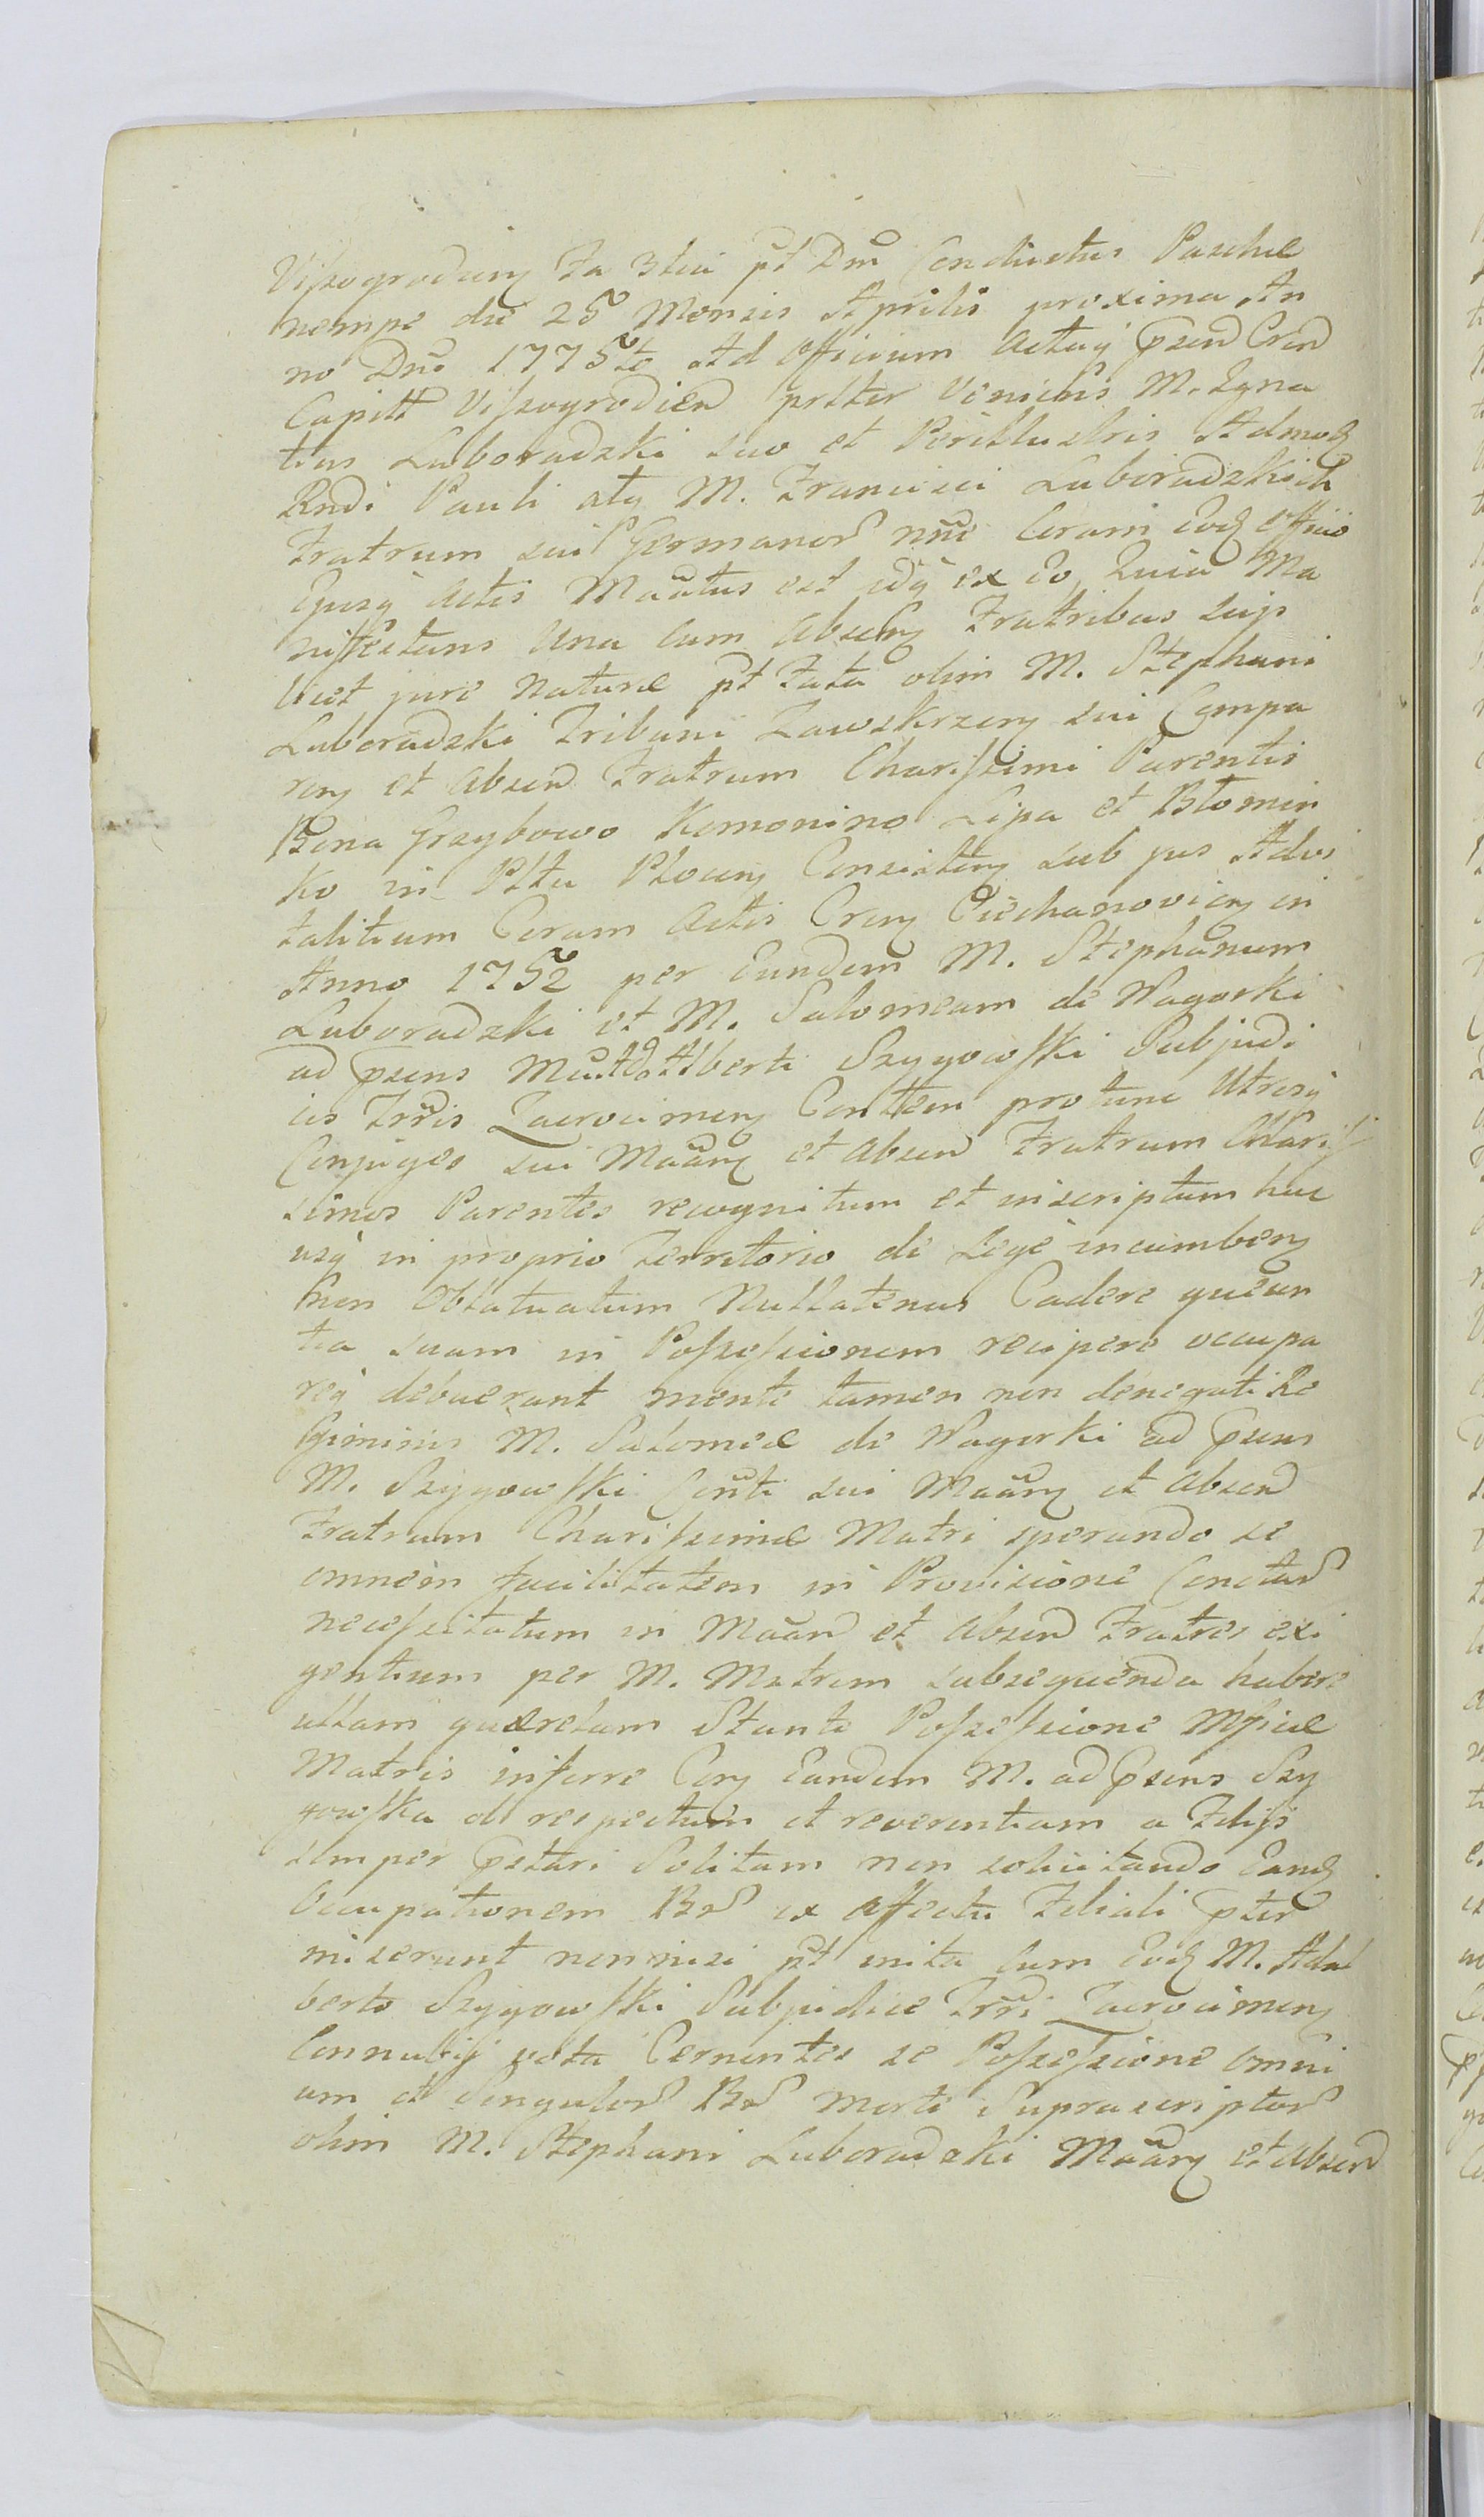 Viszogroduiẽ Fa 3tia pt Dm̃ Conductus Paschæ
nempe die 25 Mensis Aprilis proxima An
no Dn̄i 1775to Ad Officium Actaq̃ psen Cren
Capitt Viszogrodien prlter Veniens M. Igna
tius Luboradzki suo et Perillustris Admoḍ
Rndi Pauli atq M. Francisci Luboradzkich
Fratrum sui Germanor nn̄e Coram Eoḍ Officio
Ejusq̃ Actis Maãtus est idq̃ ex Eo, Quia Ma
nifestans Una Cum Absenẽ Fratribus suis
licet jure Naturæ pt Fata olim M. Stephani
Luboradzki Tribuni Zawskrzenẽ sui Compa
renẽ et Absen Fratrum Charissimi Parentis
Bona Grzybowo Komonino Lipa et Błomin
ko in Pltu Plocenẽ Consistenẽ sub jus Advi
talitium Coram Actis Crenẽ Ciechanovienẽ in
Anno 1752 per Eundem M. Stephanum
Luboradzki et M. Salomeam de Nagorki
ad psens M. Ad.Alberti Szygowski Subjudi
cis Trr̃is Zacrocimenẽ Conttem protunc Utrosq̃
Conjuges sui Maãnẽ et Absen Fratrum Charis
simos Parentes recognitum et inscriptum huc
usq̃ in proprio Territorio de Lege incumbenẽ
non Oblatuatum Nullatenus Cadere queun
tia suam in Possessionem recipere occupa
req̃ debuerant mente tamen non denegati Re
giminis M. Salomeæ de Nagorki ad psens
M. Szygowski Con̄ti sui Maãnẽ et Absen
Fratrum Charissimæ Matri sperando se
omnem facilitatem in Provisione Cunctar
necessitatum in Maãn et Absen Fratres exi
gentium per M. Matrem subsequenda habere
ullam quærelam Stante Possessione Mficæ
Matris inferre Conẽ Eandem M. ad Psens Szy
gowska ob respectum et reverentiam a Filijs
semper pstari Solitam non solicitando Eanḍ
Occupationem Br ex affectu Filiali pter
miserunt non nisi pt inita Cum Eoḍ M. Adal
berto Szygowski Subjudice Trr̃i Zacrocimenẽ
Connubij vota Cernentes se Possessione Omni
um et Singulor Br Morte Suprascriptor
olim M. Stephani Luboradzki Maãnẽ et Absen